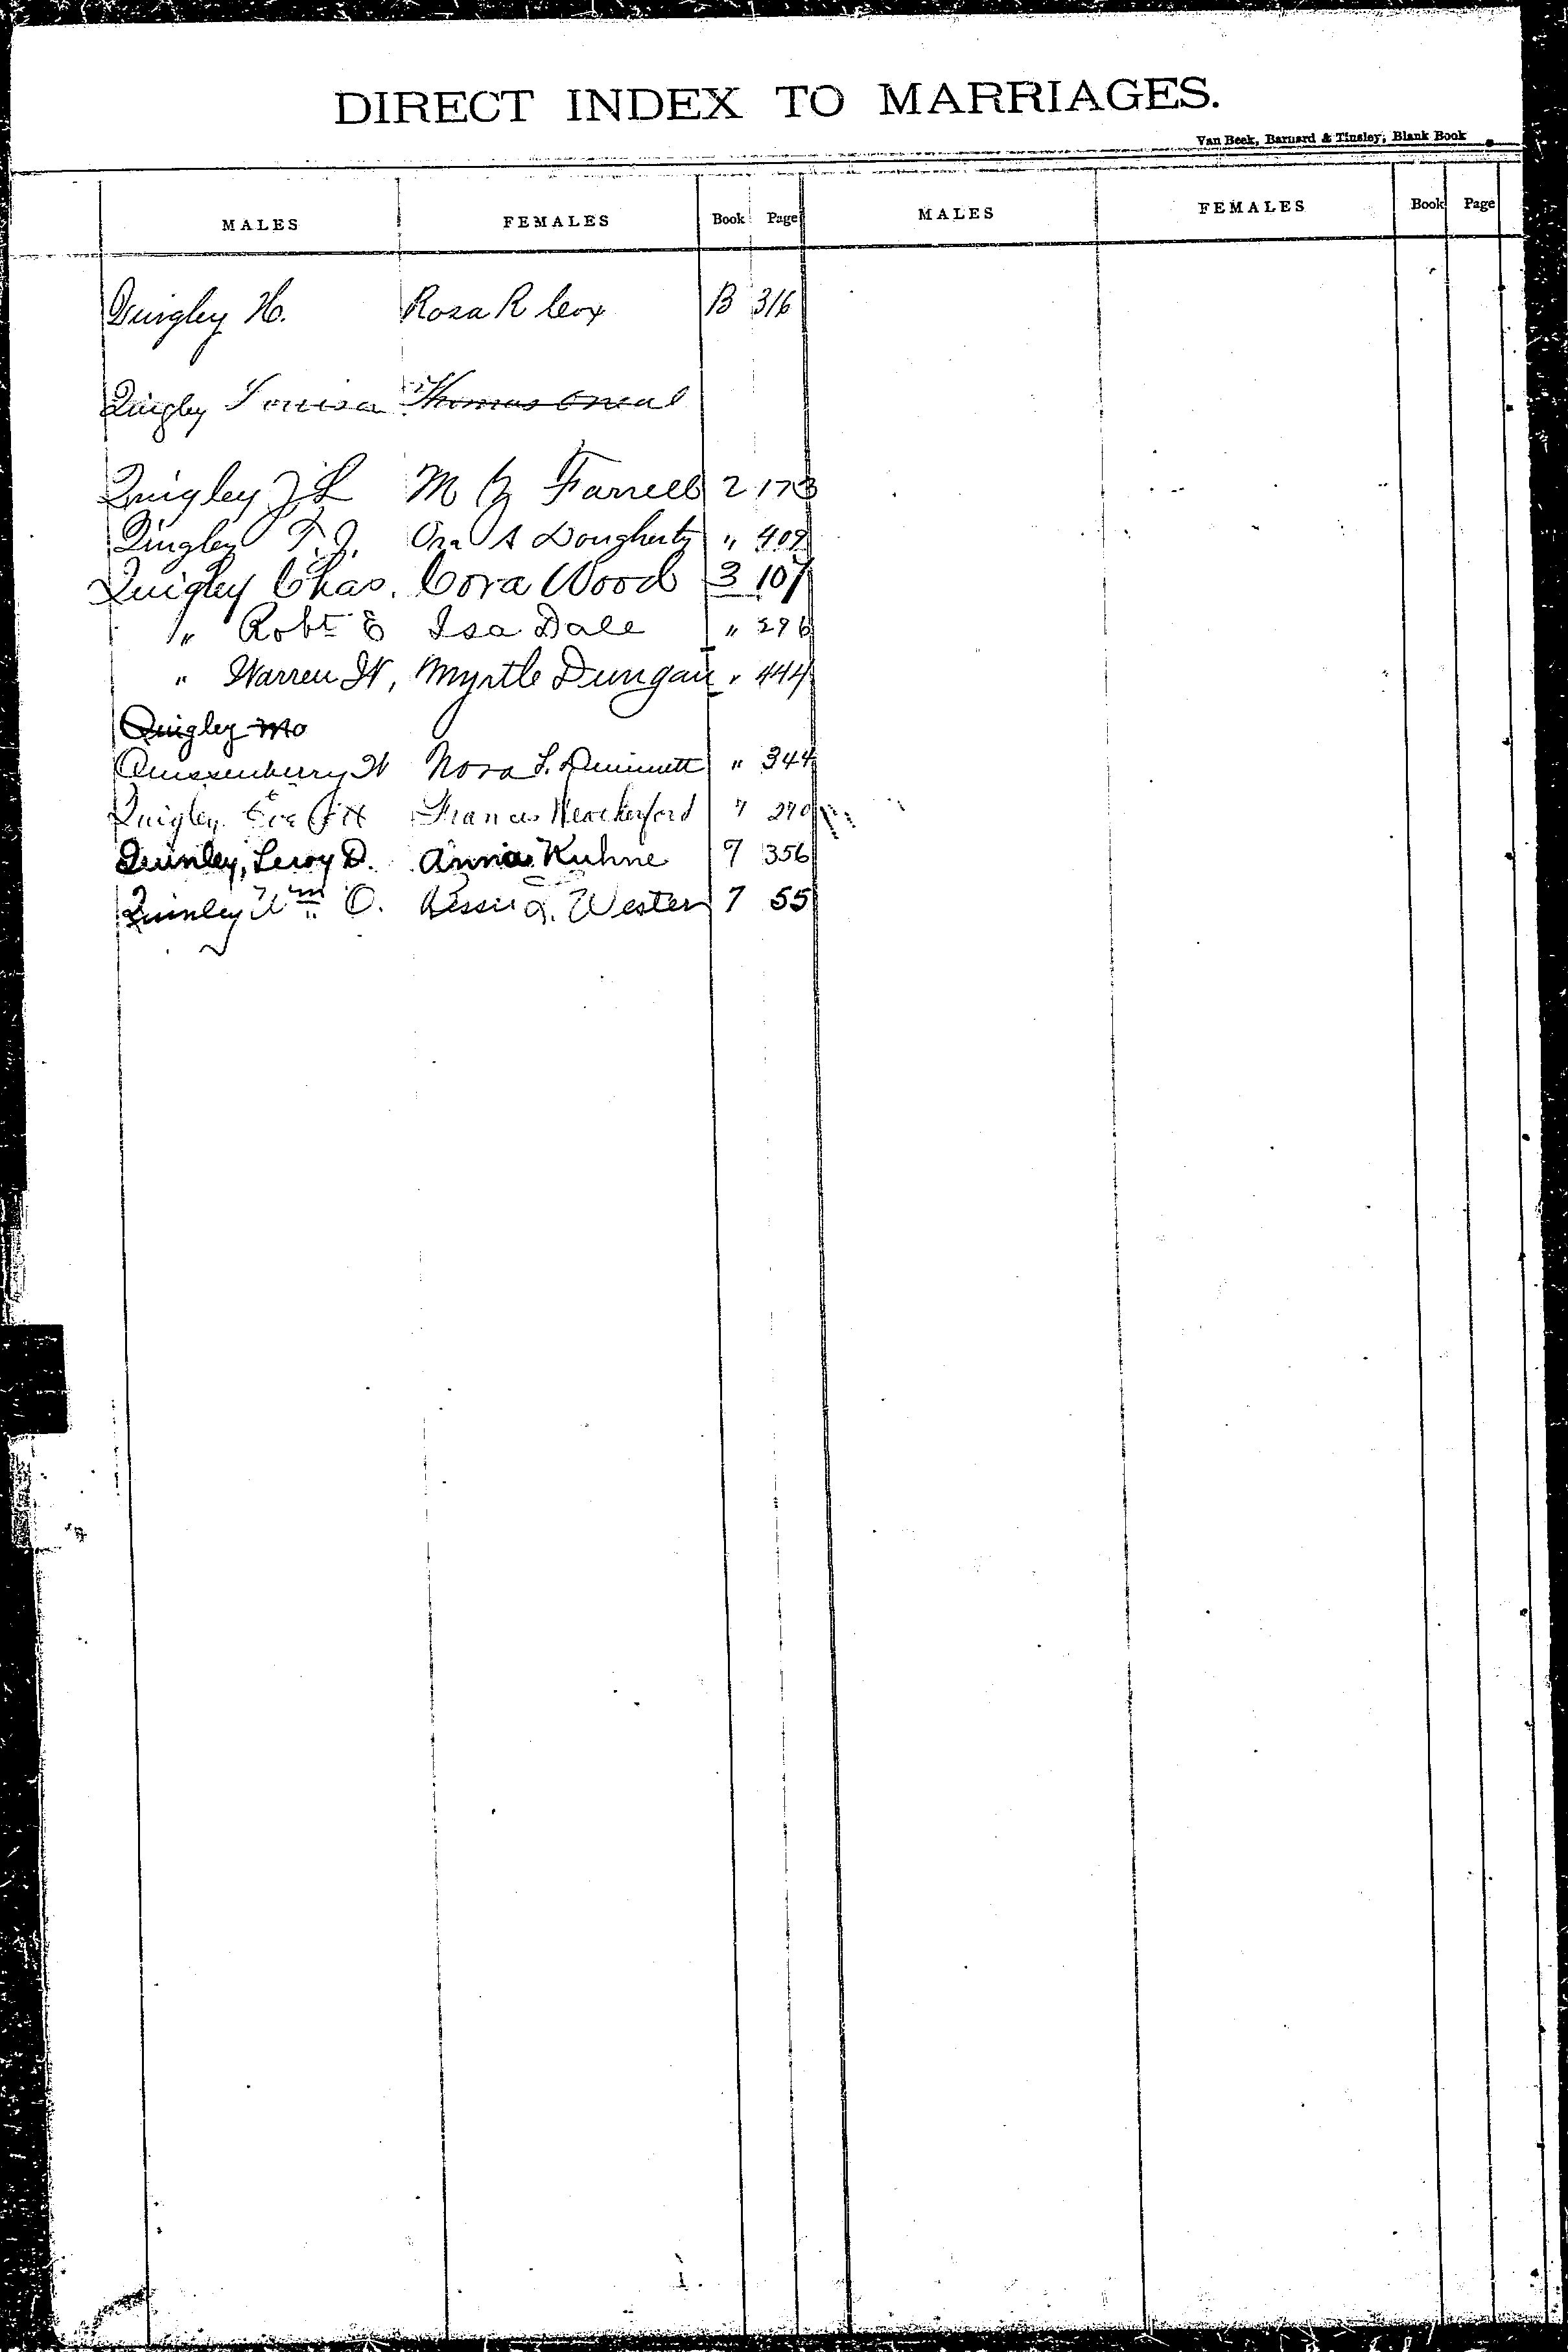 DIRECT INDEX TO MARRIAGES.
Van Beek, Barnard & Tinsley, Blank Book
MALES FEMALES Book Page MALES FEMALES Book Page
Quigley H. Rosa R Cox B 316
Quigley Louisa Thomas Oneal
Quigley J L M Farrell 2 173
Quigley T.J. Ora A Dougherty " 409
Quigley Chas. Cora Wood 3 107
" Robt E Isa Dale " 296
" Warren W, Myrtle Dungan " 444
Quigley Mo
Quissenberry W Nora L. " 344
Quigley Francis Weatherford 7 270
Quinley, Leroy D. Anna Kuhne 7 356
Quinley Wm O. Bessie L. Wester 7 55